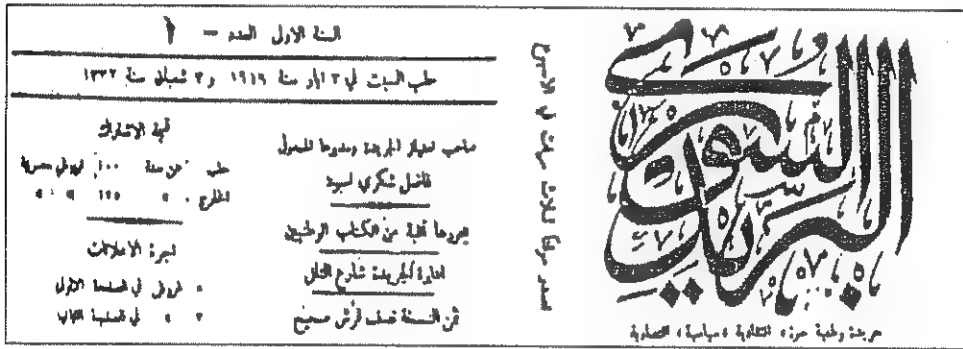 البريد السوري
جريدة وطنية حرة، انتقادية، سياسية، اقتصادية
تصدر موقتاً ثلاث مرات في الاسبوع
السنة الاولى العدد — ١
حلب السبت في ٣ ايار سنة ١٩١٩ و ٣ شعبان سنة ١٣٣٧
صاحب امتياز الجريدة ومديرها المسؤول
فاضل شكري اسود
يحررها نخبة من الكتاب الوطنيين
ادارة الجريدة شارع التلل
ثمن النسخة نصف قرش صحيح
قيمة الاشتراك
حلب عن سنة ١٠٠ غروش مصرية
الخارج » » ١٢٥ » »
اجرة الاعلانات
٥ غروش في الصفحة الاولى
٣ » في الصفحة